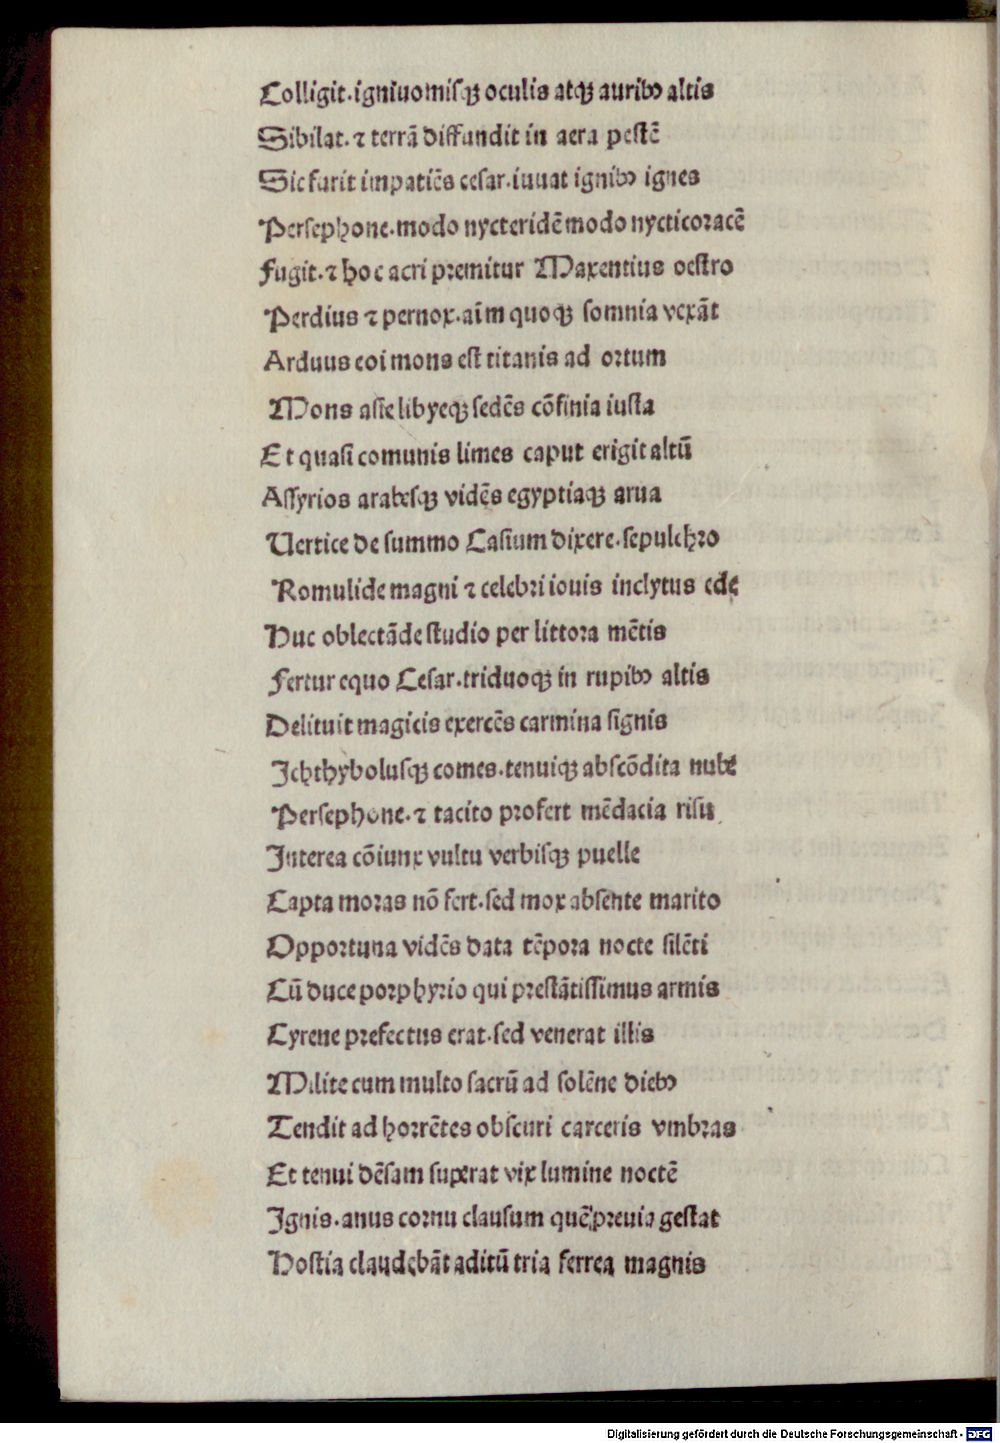 Colligit.igniuomiſqꝫ oculis atqꝫ auribꝰ altis
Sibilat.⁊ terrā diffundit in aera peſtē
Sic furit impatiēs ceſar.iuuat ignibꝰ ignes
Perſephone.modo nycteridē modo nycticoracē
Fugit.⁊ hoc acri premitur Maxentius oeſtro
Perdius ⁊ pernox.aīm quoqꝫ ſomnia vexāt
Arduus eoi mons eſt titanis ad ortum
Mons aſie libyeqꝫ ſedēs cōfinia iuſta
Et quaſi comunis limes caput erigit altū
Aſſyrios arabeſqꝫ vidēs egyptiaqꝫ arua
Vertice de ſummo Caſium dixere.ſepulchro
Romulide magni ⁊ celebri iouis inclytus ede
Huc oblectāde ſtudio per littora mētis
Fertur equo Ceſar.triduoqꝫ in rupibꝰ altis
Delituit magicis exercēs carmina ſignis
Ichthyboluſqꝫ comes.tenuiqꝫ abſcōdita nube
Perſephone.⁊ tacito profert mēdacia riſu
Interea cōiunx vultu verbiſqꝫ puelle
Capta moras nō fert.ſed mox abſente marito
Opportuna vidēs data tēpora nocte ſilēti
Cū duce porphyrio qui preſtātiſſimus armis
Cyrene prefectus erat.ſed venerat illis
Milite cum multo ſacrū ad ſolēne diebꝰ
Tendit ad horrētes obſcuri carceris vmbras
Et tenui dēſam ſuperat vix lumine noctē
Ignis.anus cornu clauſum quē preuia geſtat
Hoſtia claudebāt aditū tria ferrea magnis
Digitalisierung gefördert durch die Deutsche Forschungsgemeinschaft - DFG